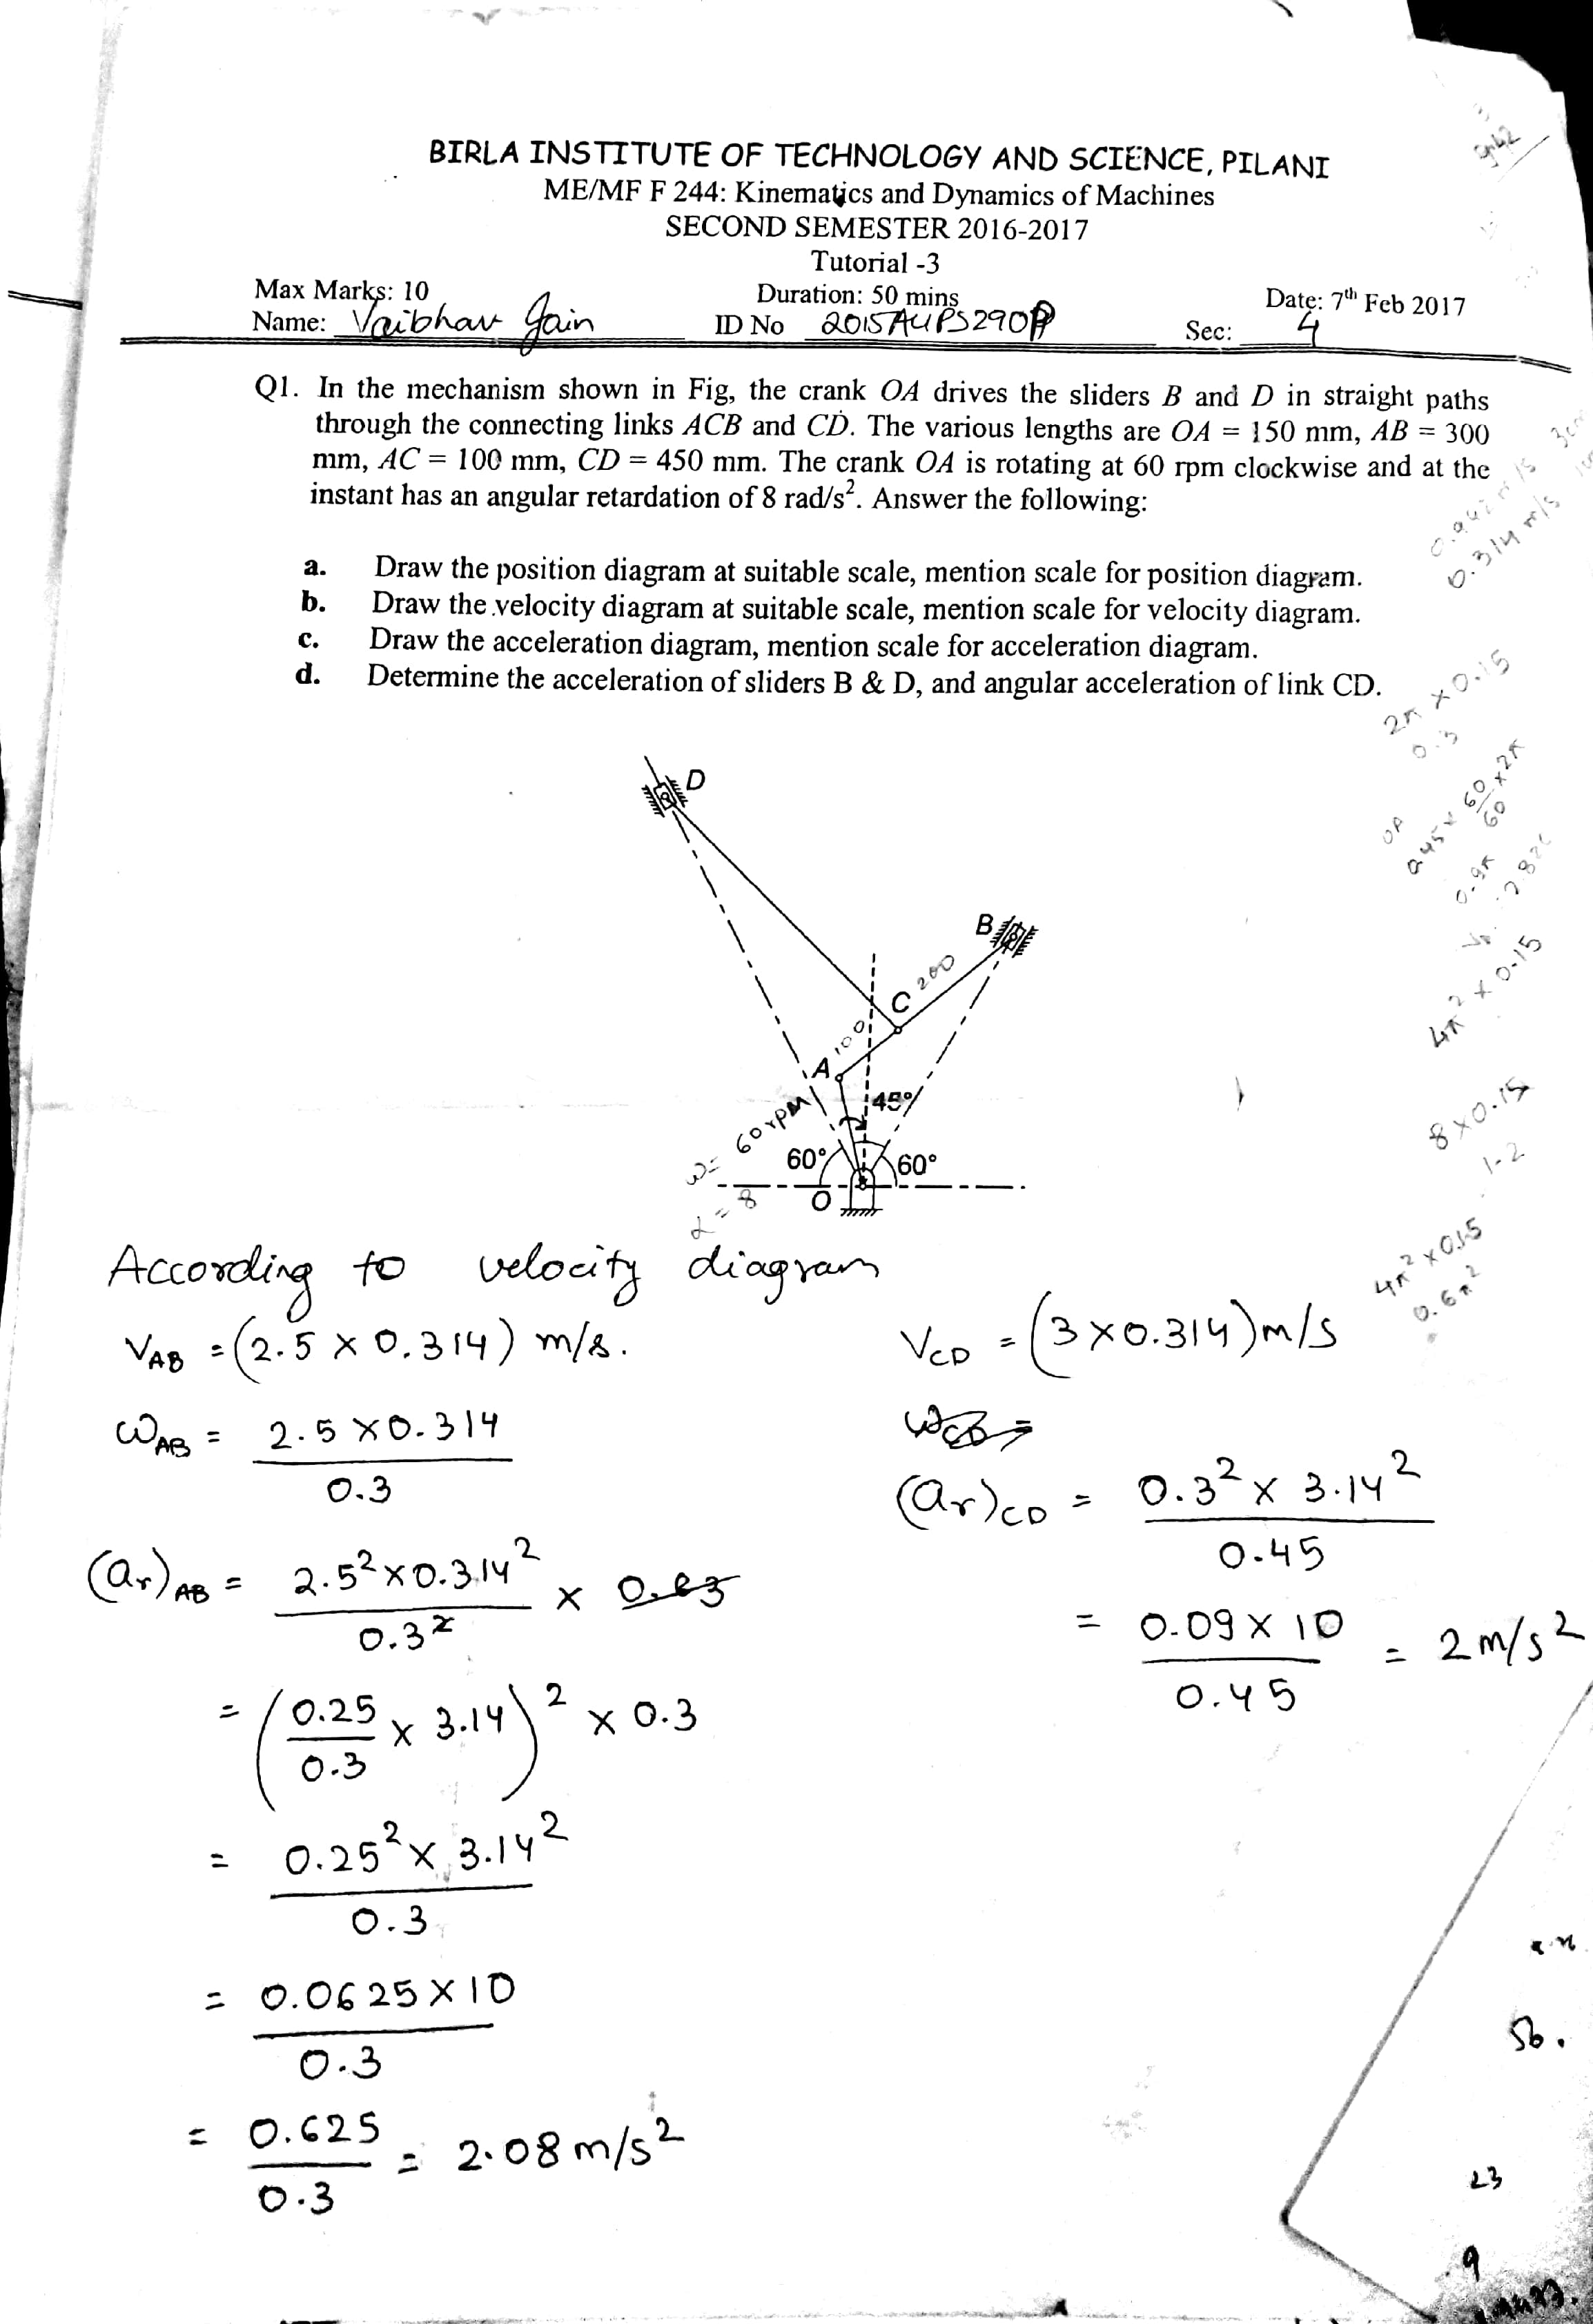 BIRLA INSTITUTE OF TECHNOLOGY AND SCIENCE, PILANI
ME/MF F 244: Kinematics and Dynamics of Machines
SECOND SEMESTER 2016-2017
Tutorial -3
Max Marks: 10 Duration: 50 mins Date: 7th Feb 2017
Name: Vaibhav Jain ID No 2015A4PS290P Sec: 4
Q1. In the mechanism shown in Fig, the crank OA drives the sliders B and D in straight paths
through the connecting links ACB and CD. The various lengths are OA = 150 mm, AB = 300
mm, AC = 100 mm, CD = 450 mm. The crank OA is rotating at 60 rpm clockwise and at the
instant has an angular retardation of 8 rad/s². Answer the following:
a. Draw the position diagram at suitable scale, mention scale for position diagram.
b. Draw the velocity diagram at suitable scale, mention scale for velocity diagram.
c. Draw the acceleration diagram, mention scale for acceleration diagram.
d. Determine the acceleration of sliders B & D, and angular acceleration of link CD.
0.942 m/s
0.314 m/s
2π × 0.15
0.3
0.45 × 60/60 × 2π
0.9π
4π² × 0.15
8 × 0.15
1.2
4π² × 0.15
0.6π²
D
B
C 200
100
A
45°
ω = 60 rpm
60° 60°
α = 8
O
According to velocity diagram
V_AB = (2.5 × 0.314) m/s.
ω_AB = 2.5 × 0.314 / 0.3
(ar)_AB = 2.5² × 0.314² / 0.3² × 0.3
= (0.25 / 0.3 × 3.14)² × 0.3
= 0.25² × 3.14² / 0.3
= 0.0625 × 10 / 0.3
= 0.625 / 0.3 = 2.08 m/s²
V_CD = (3 × 0.314) m/s
ω_CD =
(ar)_CD = 0.3² × 3.14² / 0.45
= 0.09 × 10 / 0.45 = 2 m/s²
56.
23
9